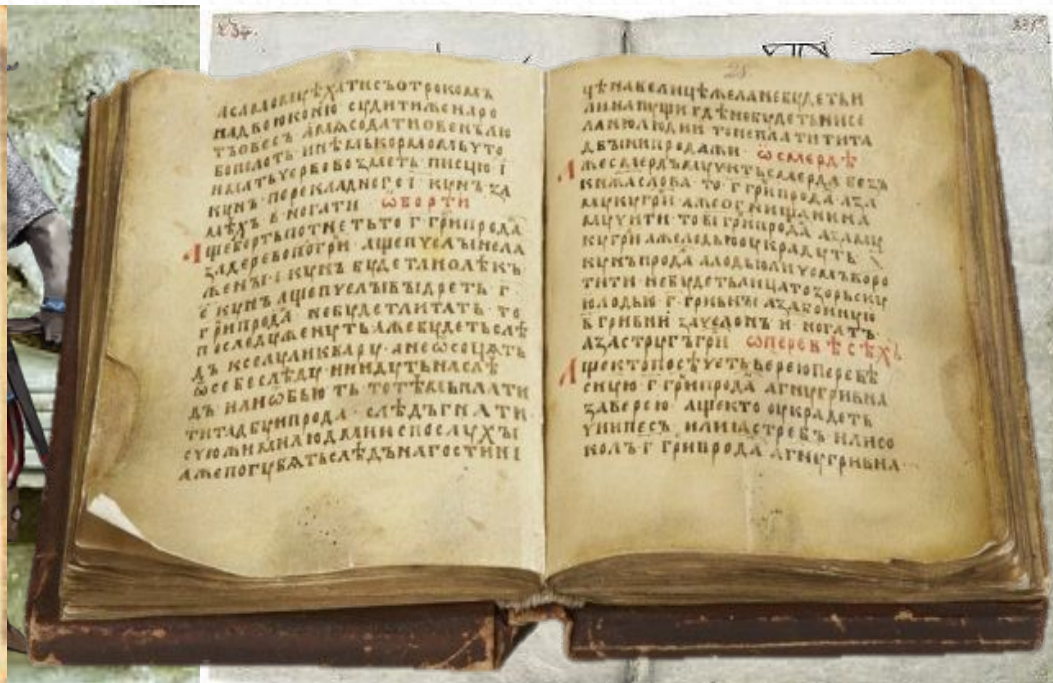 АСАМОМУѢХАТИСЪОТРОКОМЪ
НАДВОЮКОНЮ СУДИТИЖЕНАРО
ТЪОВЕСЪ АМѦСОДАТИОВЕНЪЛЮ
БОПОЛОТЬ ИНѢМЬКОРМОМЬБУТО
ИМАТЬЧЕРВОВОЗМЕТЬ ПИСЦЮ І
КУНЪ ПЕРЕКЛАДНЕГО Е҃ КУНЪ ЗА
МѢХЪ В НОГАТИ ѠБОРТИ
АЩЕБОРТЬПОТНЕТЬТО Г ГРИПРОДА
ЗАДЕРЕВОПОЛГРИ АЩЕПЧЕЛЫИЗЛА
ЖЕНЫ І КУНЪ БУДЕТЛИОЛѢКЪ
Е КУНЪ АЩЕПЧЕЛЫВЫДРЕТЬ Г
ГРИПРОДА НЕБУДЕТЛИТАТЬ ТО
ПОСЛЕДУЖЕНУТЬ АЖЕБУДЕТЬСЛѢ
ДЪ КСЕЛУИЛИКВАРУ АНЕѠСОЧѦТЬ
ѠСЕБЕСЛѢДУ НИИДУТЬНАСЛѢ
ДЪ ИЛИѠБЬЮ ТЬ ТОТѢМЪПЛАТИ
ТИТАДБУИПРОДА СЛѢДЪГНАТИ
СУЮЖИМИЛЮДМИИСПОСЛУХЫ
АЖЕПОГУБѦТЬСЛѢДЪНАГОСТИНІ
ЦѢНАВЕЛИЦѢЖЕЛАНЕБУДЕТЬИ
ЛИНАПУЩИГДѢНЕБУДЕТЬНИСЕ
ЛАНИЛЮДИИ ТОНЕПЛАТИТИТА
ДБЫНИПРОДАЖИ ѠСМЕРДѢ
АЖЕСМЕРДЪМУЧИТЬСМЕРДА БЕЗЪ
КНѦЖАСЛОВА ТО Г ГРИПРОДА АЗА
МУКУГРИ АЖЕОГНИЩАНИНА
МУЧИТИ ТОВІ ГРИПРОДА АЗАМУ
КУГРИ АЖЕЛОДЬЮОУКРАДУТЬ
КУНЪПРОДА АЛОДЬЮЛИЧЕМЪВОРО
ТИТИ НЕБУДЕТЬЛИЦАТОЗАМОРЬСКУ
ЮЛОДЬЮ Г ГРИВНЫ АЗАБОИНУЮ
В ГРИВНИ ЗАЧЕЛОМЪ И НОГАТЪ
АЗАСТРУГЪГРИ ѠПЕРЕВѢСѢХЪ
АЩЕКТОПОСѢЧЕТЬВЕРЕЮПЕРЕВѢ
СНУЮ Г ГРИПРОДА АГНУГРИВНА
ЗАВЕРЕЮ АЩЕКТО ОУКРАДЕТЬ
ЧИИПЕСЪ ИЛИЯСТРЕБЪ ИЛИСО
КОЛЪ Г ГРИПРОДА АГНУГРИВНА